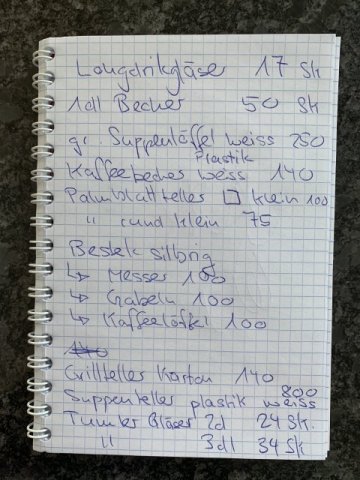 Longdrikgläser 17 Stk
1dl Becher 50 Stk
gr. Suppenlöffel weiss 250
Plastik
Kaffeebecher weiss 140
Palmblattteller □ klein 100
" rund klein 75
Bestek silbrig
↳ Messer 100
↳ Gabeln 100
↳ Kaffeelöffel 100
140
Grillteller Karton 140
800
Suppenteller plastik weiss
Tumler Gläser 2d 24 Stk.
" 3dl 34 Stk